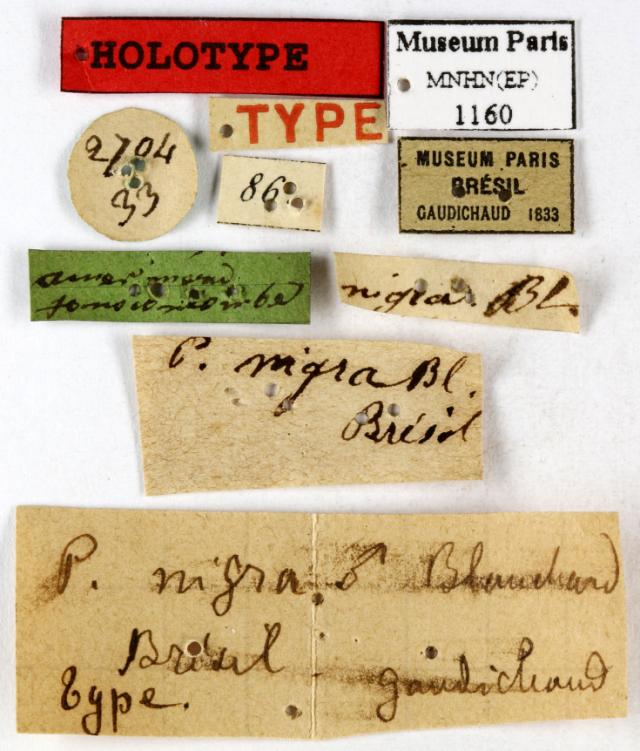 HOLOTYPE
Museum Paris
MNHN(EP)
1160
TYPE
2704
33
86
MUSEUM PARIS
BRÉSIL
GAUDICHAUD 1833
nigra. Bl.
P. nigra Bl.
Brésil
P. nigra ♂ Blanchard
Brésil gaudichaud
Type.